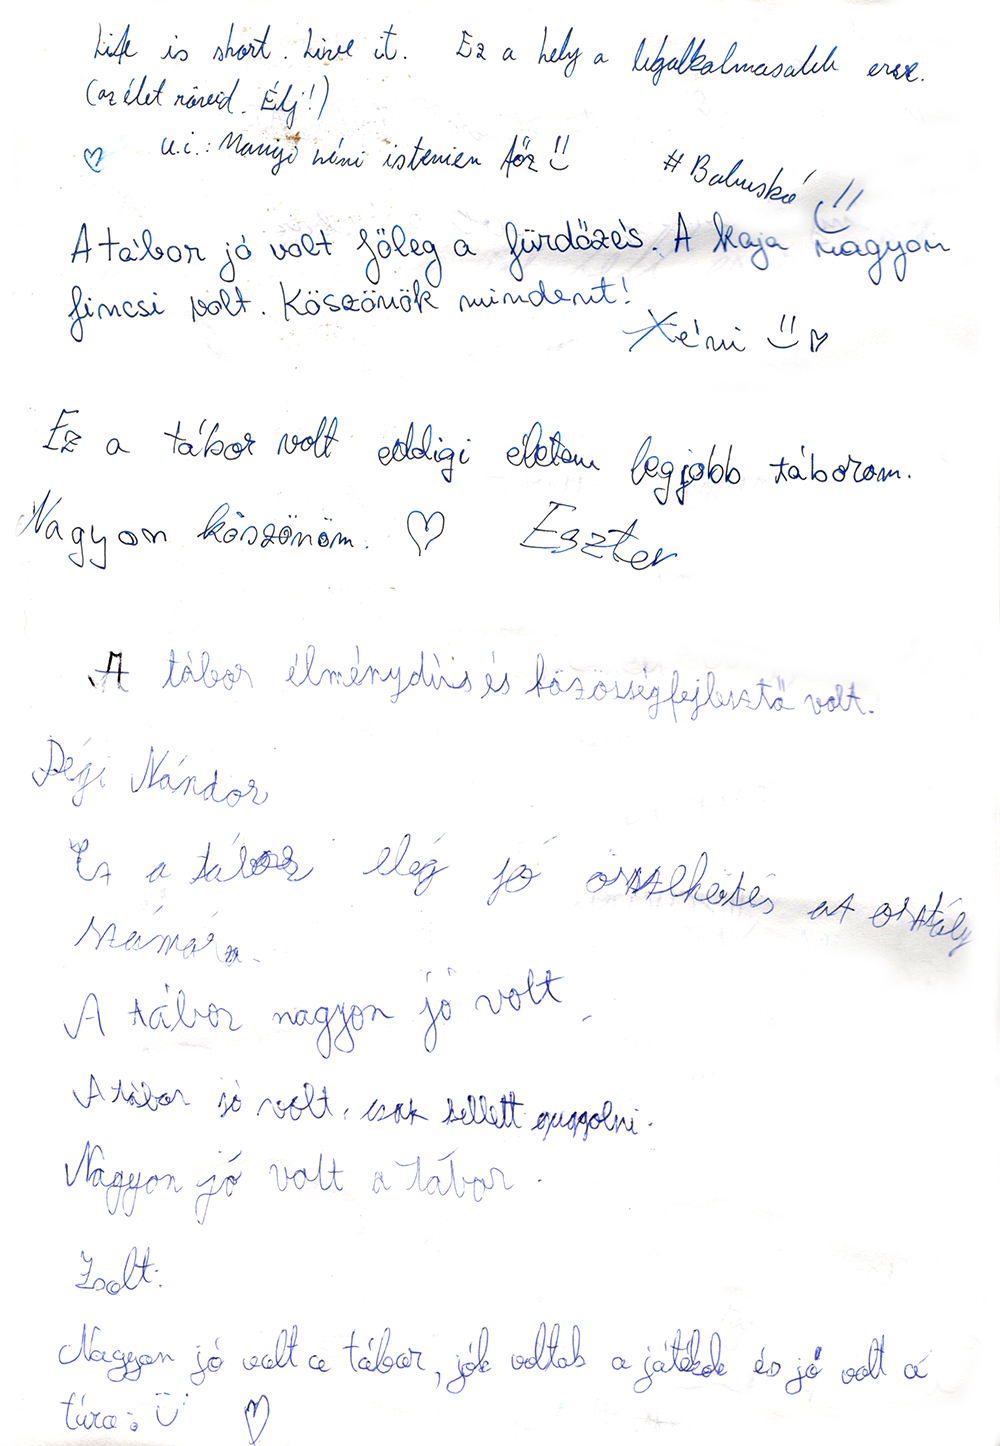 Life is short. Live it. Ez a hely a legalkalmasabb erre.
(az élet rövid. Élj!)
♡ u.i.: Manyi néni istenien főz
#Babuskó
A tábor jó volt főleg a fürdőzés. A kaja nagyon
fincsi volt. Köszönök mindent!
Xéni ♡
Ez a tábor volt eddigi életem legjobb táborom.
Nagyon köszönöm. ♡ Eszter
A tábor élménydús és közösségfejlesztő volt.
Dégi Nándor
Ez a tábor elég jó összehozás az osztály
számára.
A tábor nagyon jó volt.
A tábor jó volt, csak kellett guggolni.
Nagyon jó volt a tábor.
Zsolt:
Nagyon jó volt a tábor, jók voltak a játékok és jó volt a
túra. ♡